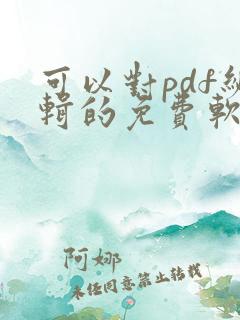 可以對pdf編
輯的免費軟
阿娜
未经同意禁止转载